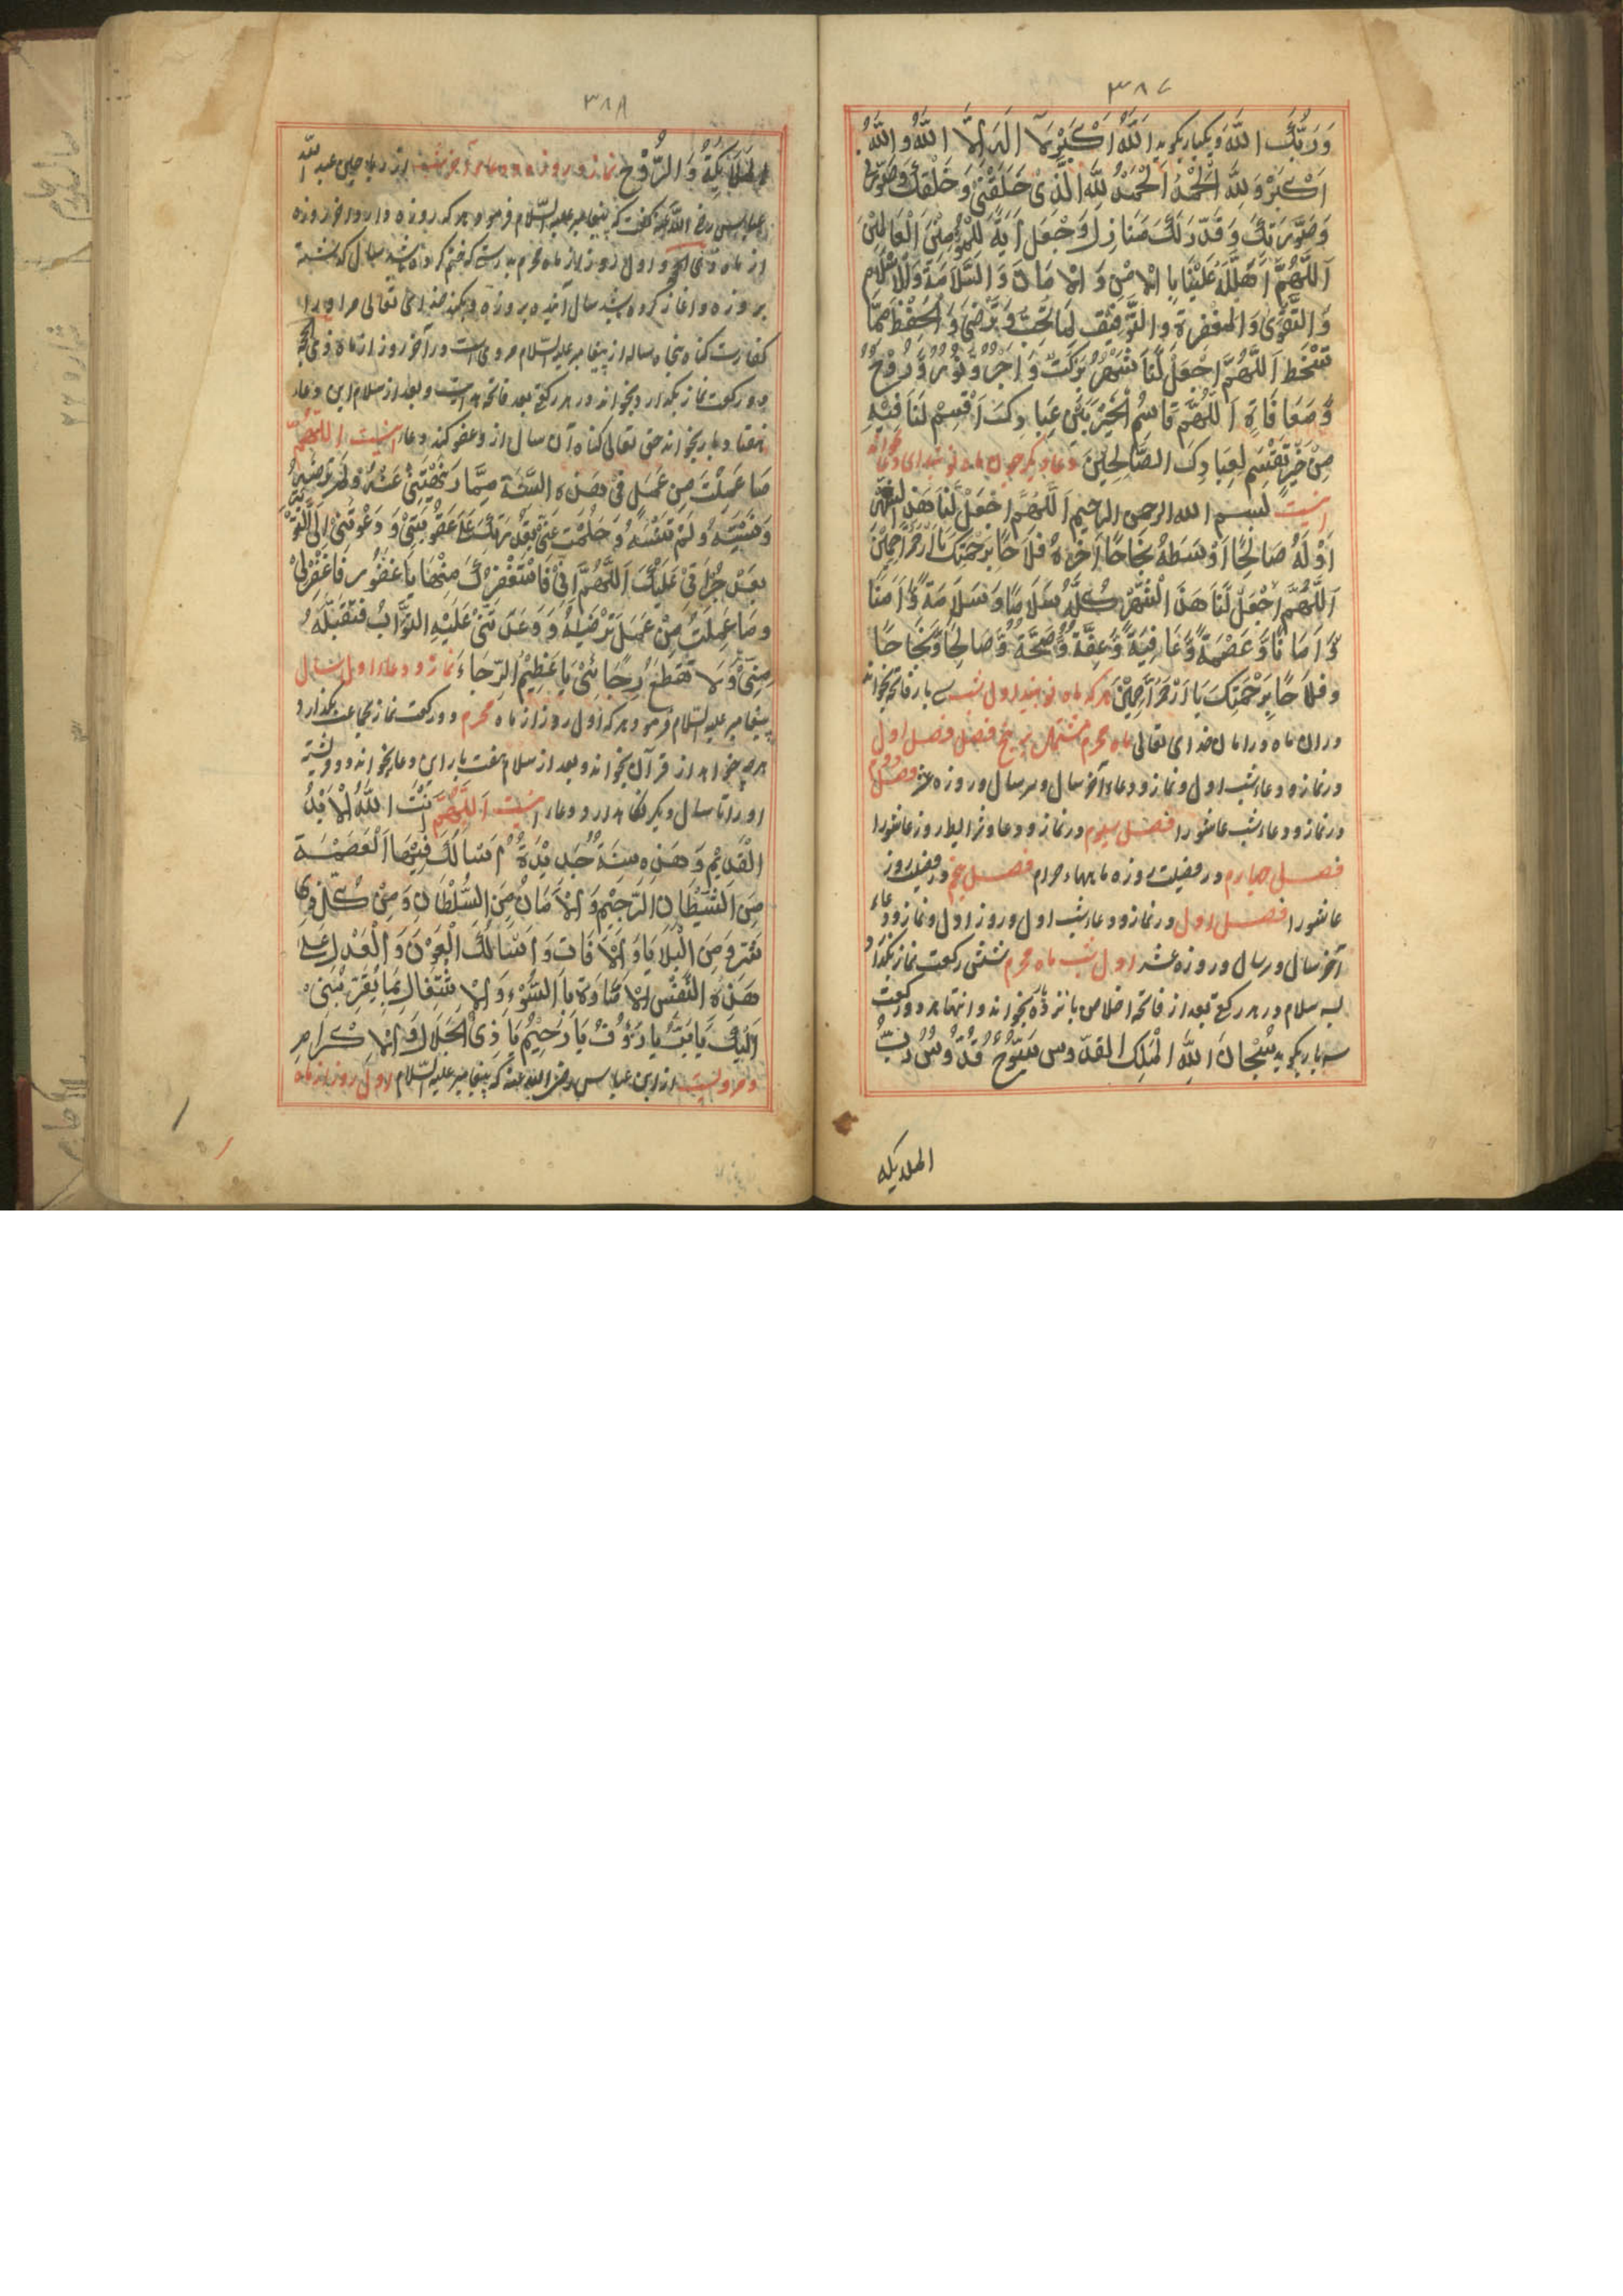 ٣٨٧
وَرَبُّكَ اللَّهُ ویکبار بکوید اَللَّهُ اَكْبَرُ لَا اِلَهَ اِلَّا اللَّهُ وَ اللَّهُ
اَكْبَرْ وَلِلَّهِ الْحَمْدُ اَلْحَمْدُ لِلَّهِ الَّذِیْ خَلَقَنِیْ وَخَلَقَكَ وَصَوَّرَنِی
وَصَوَّرَتَكَ وَقَدَّرَ لَكَ مَنَازِلَ وَجَعَلَ اَیَةً لِلْمُؤْمِنِیْنَ الْعَالَمِیْنَ
اَللَّهُمَّ اَهِلَّلَهُ عَلَیْنَا بِا الْاَمْنِ وَ الْاَمَانِ وَ السَّلَامَةِ وَالْاِسْلَامِ
وَ التَّقْوَیٰ وَ الْمَغْفِرَةِ وَ التَّوْفِیْقِ لِمَا تُحِبُّ وَ تَرْضَیٰ وَ الْحِفْظِ مِمَّا
تَسْخَطُ اَللَّهُمَّ اجْعَلْ لَنَا شَهْرُ بَرَكَتٌ وَ اَجْرٌ وَ نُوْرٌ وَ رُوْحٌ
وَ مَعَافَاةٍ اَللَّهُمَّ قَاسِمُ الْخَیْرِ بَیْنَ عِبَادِكَ اَقْسِمْ لَنَا فِیْهِ
مِنْ خَیْرٍ تَقْسِمُ لِعِبَادِكَ الصَّالِحِیْنَ دعاء دیکر چون ماه نو
اینست بسم الله الرحمن الرحیم اَللَّهُمَّ اجْعَلْ لَنَا هَذَا الشَّهْرَ
اَوَّلَهُ صَالِحًا اَوْسَطَهُ نَجَاحًا آخِرَهُ فَلَاحًا بِرَحْمَتِكَ یَا اَرْحَمَ الرَّاحِمِیْنَ
اَللَّهُمَّ اجْعَلْ لَنَا هَذَا الشَّهْرَ كُلَّهُ سَلَامًا وَ سَلَامَةً وَّ اَمْنًا
وَّ اَمَانًا وَّ عَصْمَةً وَّ عَافِیَةً وَّ عِفَّةً وَّ صِحَّةً وَّ صَالِحًا وَّ نَجَاحًا
وَفَلَاحًا بِرَحْمَتِكَ یَا اَرْحَمَ الرَّاحِمِیْنَ هر که ماه نو بیند اول شب سی بار فاتحه بخواند
در ان ماه در امان خدای تعالی ماه محرم مشتمل بر پنج فصل فصل اول
در نماز و دعاء شب اول و نماز و دعاء آخر سال و سر سال و روزه عشر فصل دوم
در نماز و دعاء شب عاشورا فصل سیوم در نماز و دعا و شرایط روز عاشورا
فصل چهارم در فضیلت روزه ماهها حرام فصل پنجم در فضیلت روز
عاشورا فصل اول در نماز و دعاء شب اول و روز اول و نماز و دعاء
آخر سال و سر سال و روزه عشر اول شب ماه محرم شش رکعت نماز بکذارد
بسه سلام در هر رکعتی بعد از فاتحه اخلاص پانزده بخواند و انتهاء هر دو رکعت
سه بار بکوید سُبْحَانَ اللَّهِ الْمَلِكِ الْقُدُّوسِ سُبُّوْحٌ قُدُّوْسٌ رَبُّ
الملایکه
٣٨٨
الْمَلَایِكَةِ وَ الرُّوْحِ نماز و روزه و دعاء آخر سال از عبد الله
عباس رضی الله عنه کفت که پیغامبر علیه السلام فرمود هر که روزه دارد آخر روزه
از ماه ذی الحجه و اول روز از ماه محرم بدرستی که ختم کرده باشد سال کذشته
بروزه و آغاز کرده باشد سال آینده بروزه و بکند خدای تعالی مر او را
کفارت کناه پنجاه ساله از پیغامبر علیه السلام مروی است در آخر روز از ماه ذی الحجه
دو رکعت نماز بکذارد بخواند در هر رکعتی بعد فاتحه و بعد از سلام این دعاء
هفتاد بار بخواند حق تعالی کناه آن سال از و عفو کند دعاء اینست اللهم
مَا عَمِلْتُ مِنْ عَمَلٍ فِیْ هَذِهِ السَّنَةِ مِمَّا نَهَیْتَنِیْ عَنْهُ وَلَمْ تَرْضَهُ
وَ نَسِیْتُهُ وَلَمْ تَنْسَهُ وَ حَلُمْتَ عَنِّیْ بَعْدَ عَلَیٰ عَقُوْبَتِیْ وَ دَعَوْتَنِیْ اِلَی التَّوْبَةِ
بَعْدَ جُرْأَتِیْ عَلَیْكَ اَللَّهُمَّ اِنِّیْ فَاَسْتَغْفِرُكَ مِنْهَا یَا غَفُوْرُ فَاغْفِرْلِیْ
وَمَا عَمِلْتُ مِنْ عَمَلٍ تَرْضَیٰهُ وَ وَعَدْتَنِیْ عَلَیْهِ الثَّوَابَ فَتَقَبَّلْهُ
مِنِّیْ وَلَا تَقْطَعْ رَجَائِیْ یَا عَظِیْمُ الرِّجَاءَ نماز و دعاء اول سال
پیغامبر علیه السلام فرمود هر که اول روز از ماه محرم دو رکعت نماز بکذارد
هر چه خواهد از قرآن بخواند و بعد از سلام هفت بار این دعا بخواند دو فرشته
او را تا سال دیکر نکاهدارد دعاء اینست اَللَّهُمَّ اَنْتَ اللَّهُ الْاَبَدُ
الْقَدِیْمُ وَ هَذِهِ سَنَةٌ جَدِیْدَةٌ اَسْاَلُكَ فِیْهَا الْعَصْمَةَ
مِنَ الشَّیْطَانِ الرَّجِیْمِ وَ الْاَمَانَ مِنَ السُّلْطَانِ وَ مِنْ كُلِّ ذِی
شَرٍّ وَ مِنَ الْبَلَایَا وَ الْاٰفَاتِ وَ اَسْاَلُكَ الْعَوْنَ وَ الْعَدْلَ عَلَیٰ
هَذِهِ النَّفْسِ الْاَمَّارَةِ بِا السُّوْءِ وَ الْاِشْتِغَالَ بِمَا یُقَرِّبُنِیْ
اِلَیْكَ یَا رَبُّ یَا رَؤُفُ یَا رَحِیْمُ یَا ذِی الْجَلَالِ وَ الْاِكْرَامِ
و مرویست از ابن عباس رضی الله عنه که پیغامبر علیه السلام اول روز از ماه